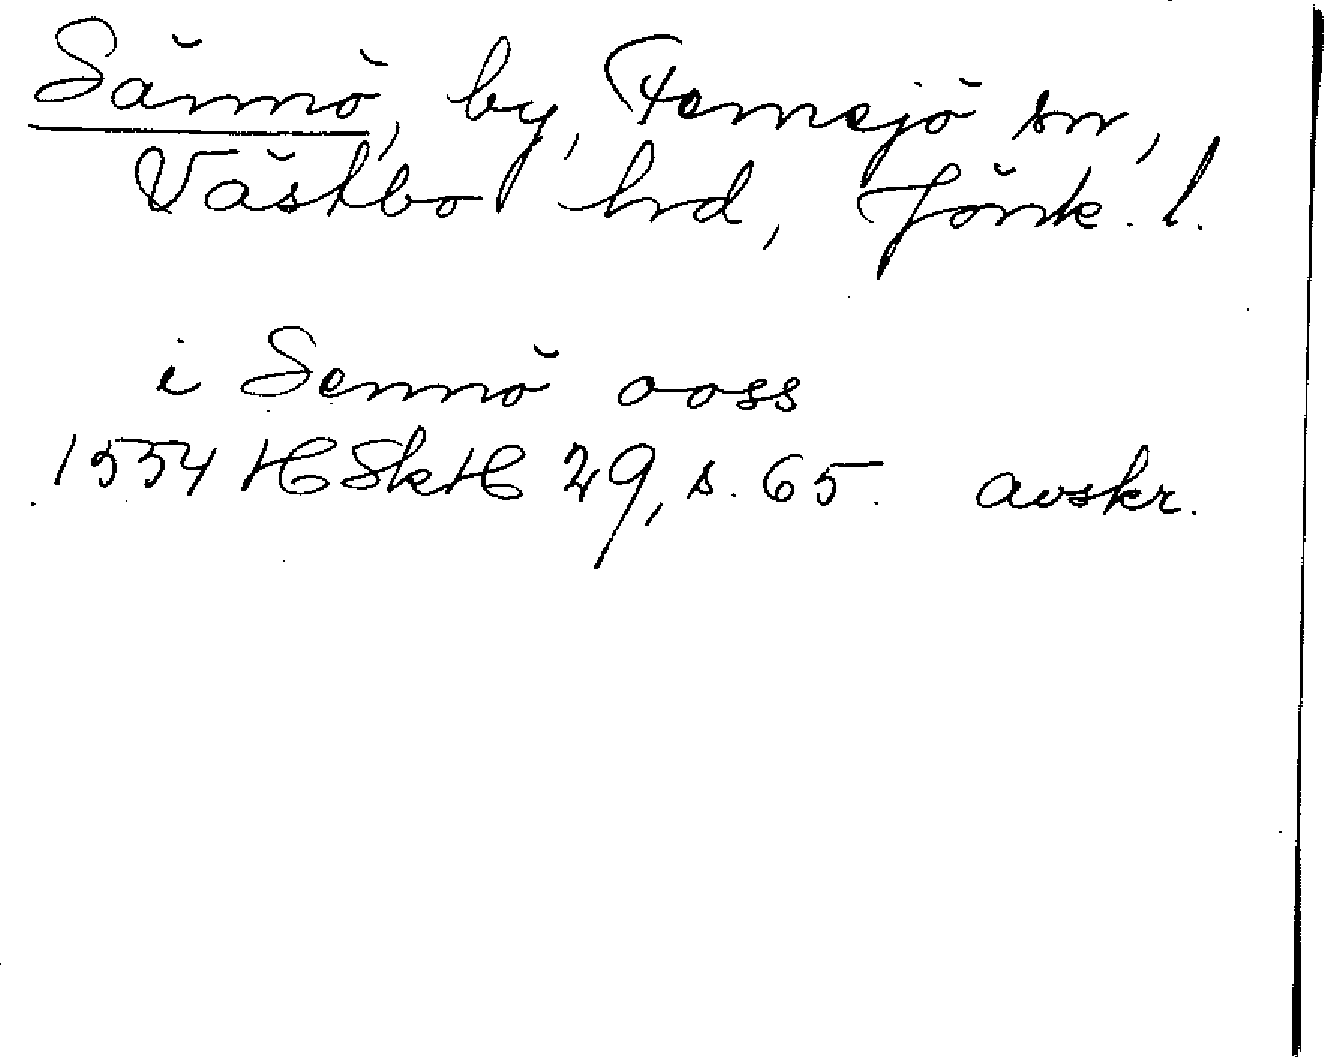 Sännö, by, Femsjö sn,
Västbo hrd, Jönk. l.
i Sennö ooss
1554 HSkH 29, s. 65. avskr.